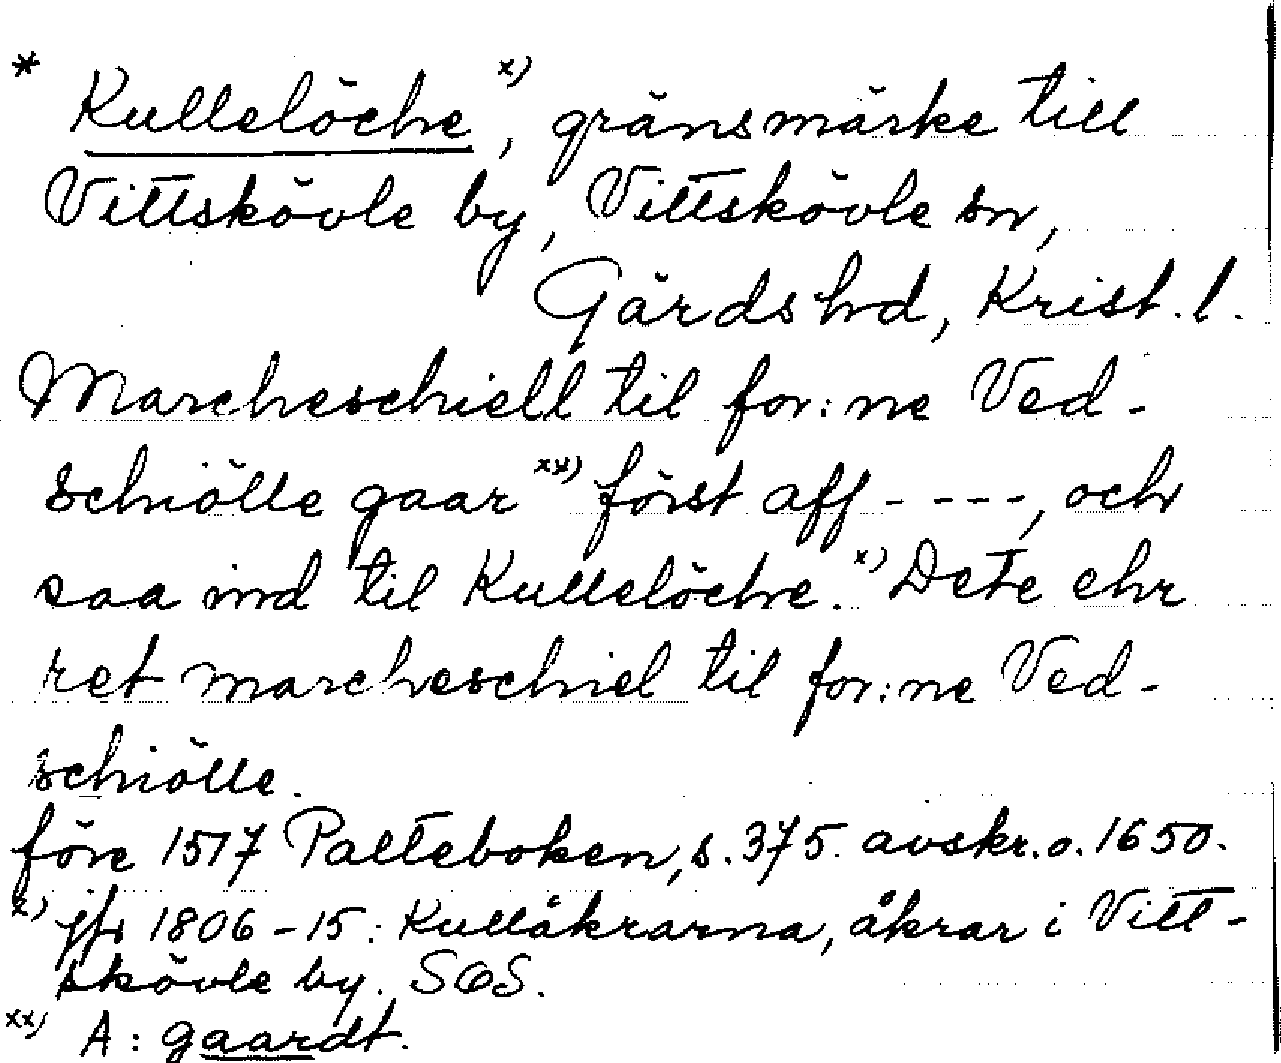 * Kullelöche x), gränsmärke till
Vittskövle by, Vittskövle sn,
Gärds hd, Krist. l.
Marcheschiell til for:ne Ved-
schiölle gaar xx) först aff - - - -, och
saa ind til Kullelöche. x) Dete ehr
ret marcheschiel til for:ne Ved-
schiölle.
före 1517 Palteboken, s. 375. avskr. o. 1650.
x) jfr 1806-15: Kullåkrarna, åkrar i Vitt-
skövle by. SOS.
xx) A: gaardt.